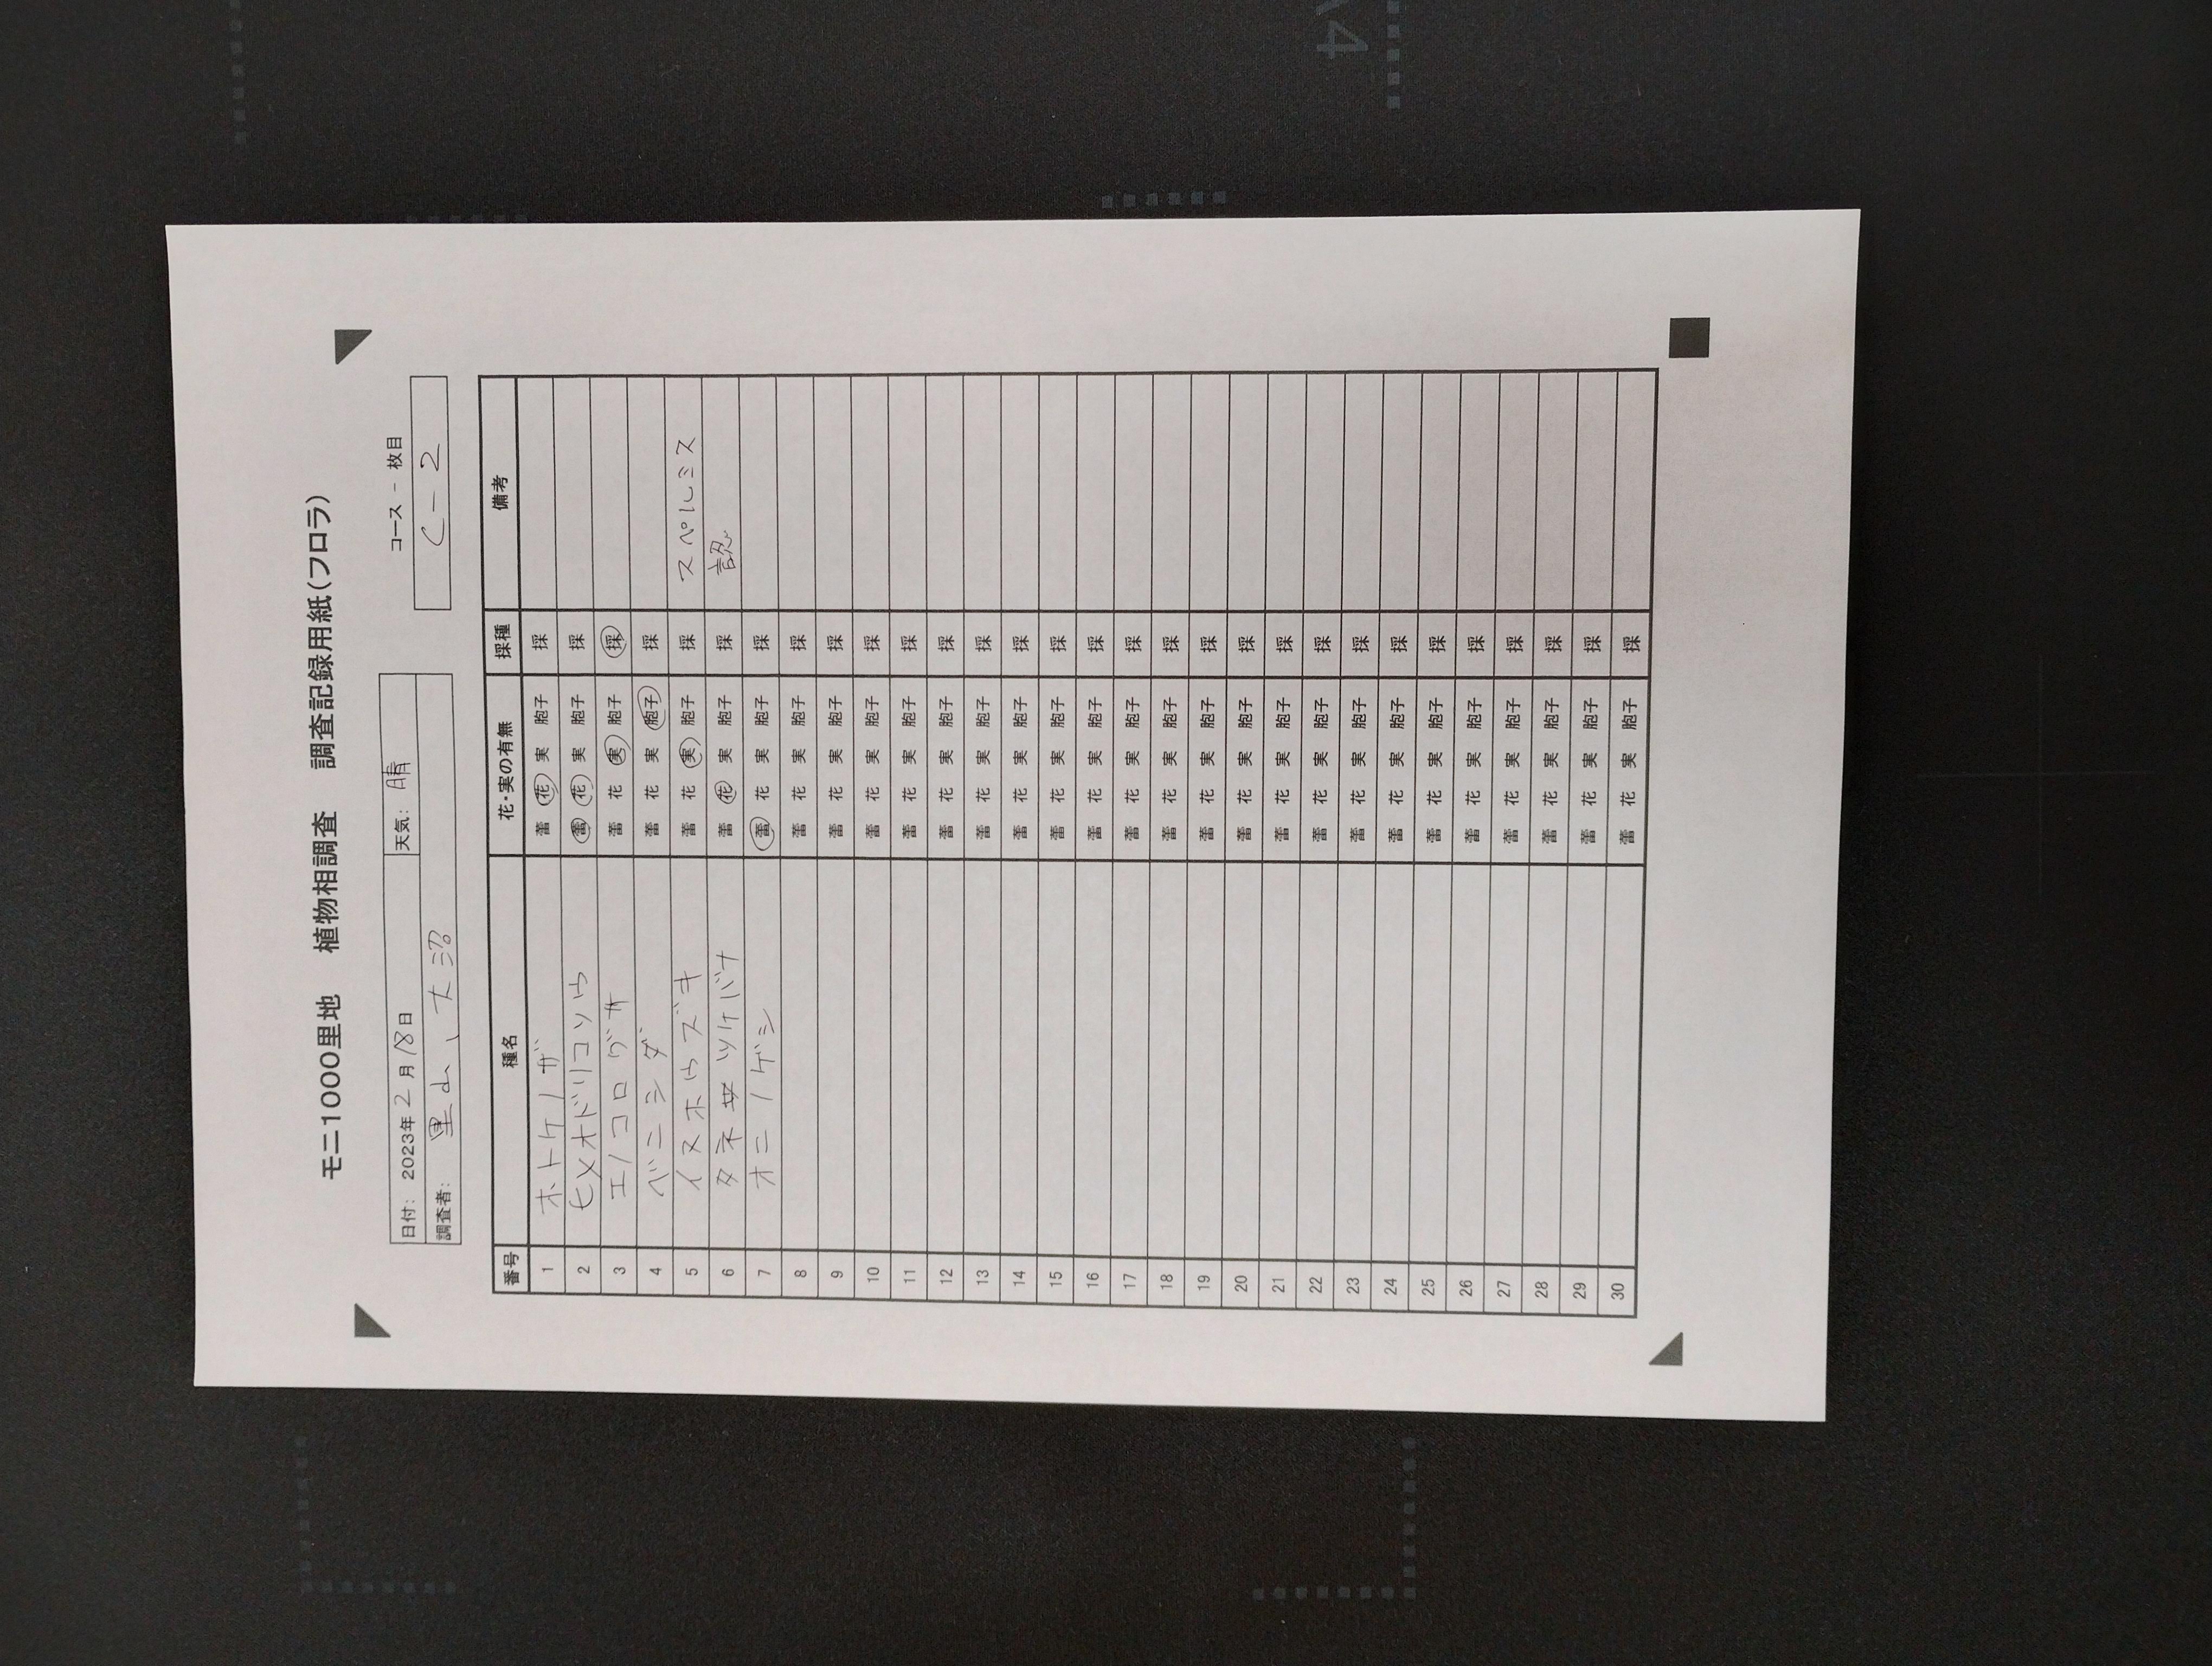 モニ1000里地 植物相調査 調査記録用紙(フロラ)
日付: 2023年 2 月 18 日 天気: 晴
コース - 枚目
調査者: 里山、大沼
C-2
番号 種名 花・実の有無 採種 備考
1 ホトケノザ 蕾 花 実 胞子 採
2 ヒメオドリコソウ 蕾 花 実 胞子 採
3 エノコログサ 蕾 花 実 胞子 採
4 ベニシダ 蕾 花 実 胞子 採
5 イヌホウズキ 蕾 花 実 胞子 採 スペルミス
6 タネツケバナ 蕾 花 実 胞子 採 認
7 オニノゲシ 蕾 花 実 胞子 採
8 蕾 花 実 胞子 採
9 蕾 花 実 胞子 採
10 蕾 花 実 胞子 採
11 蕾 花 実 胞子 採
12 蕾 花 実 胞子 採
13 蕾 花 実 胞子 採
14 蕾 花 実 胞子 採
15 蕾 花 実 胞子 採
16 蕾 花 実 胞子 採
17 蕾 花 実 胞子 採
18 蕾 花 実 胞子 採
19 蕾 花 実 胞子 採
20 蕾 花 実 胞子 採
21 蕾 花 実 胞子 採
22 蕾 花 実 胞子 採
23 蕾 花 実 胞子 採
24 蕾 花 実 胞子 採
25 蕾 花 実 胞子 採
26 蕾 花 実 胞子 採
27 蕾 花 実 胞子 採
28 蕾 花 実 胞子 採
29 蕾 花 実 胞子 採
30 蕾 花 実 胞子 採